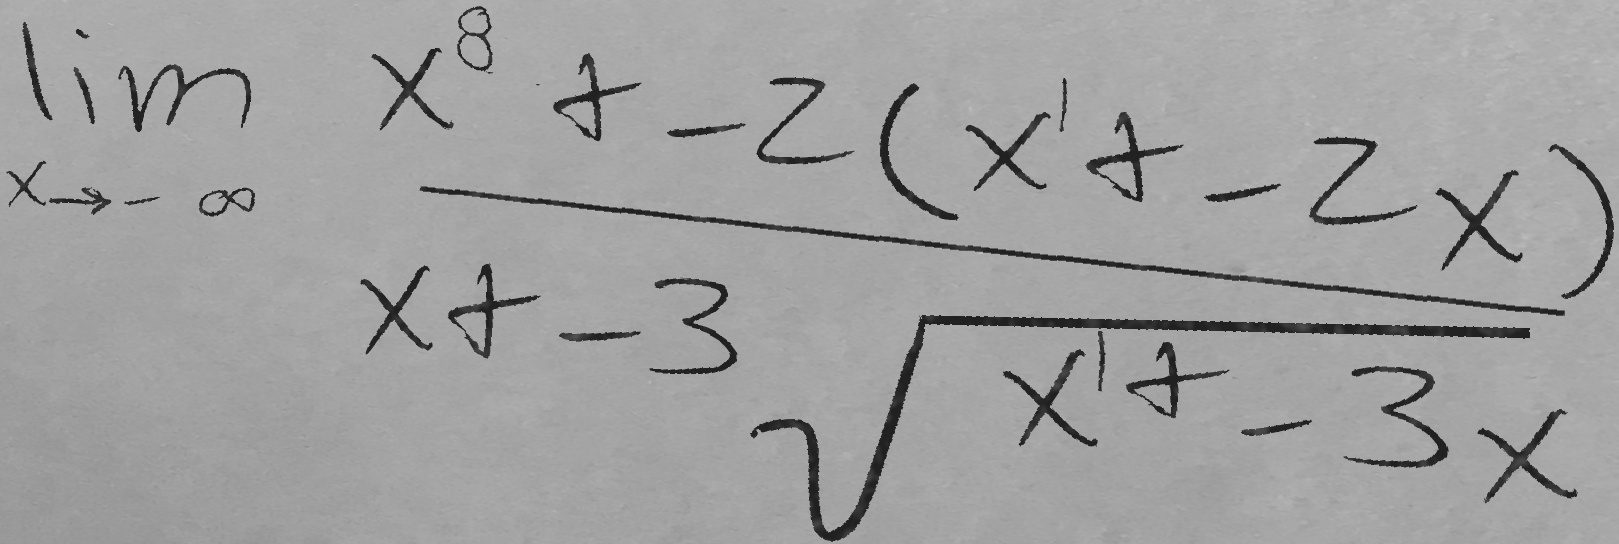 \lim_{x \to -\infty} \frac{x^8 + -2(x^1 + -2x)}{x + -3\sqrt{x^1 + -3x}}